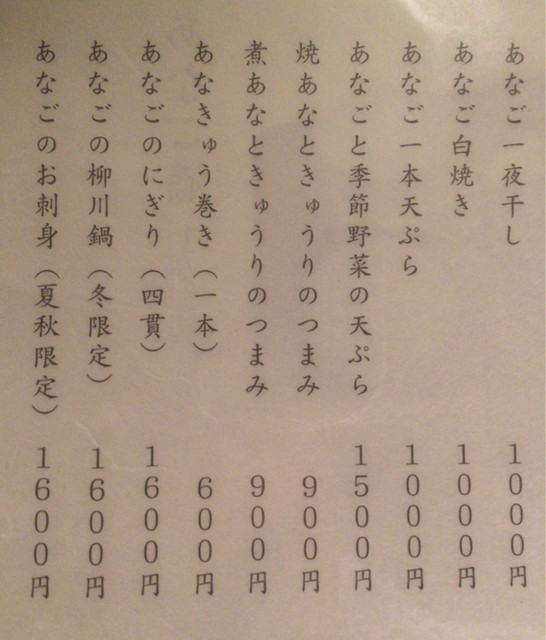 あなご一夜干し 1000円
あなご白焼き 1000円
あなご一本天ぷら 1000円
あなごと季節野菜の天ぷら 1500円
焼あなときゅうりのつまみ 900円
煮あなときゅうりのつまみ 900円
あなきゅう巻き（一本） 600円
あなごのにぎり（四貫） 1600円
あなごの柳川鍋（冬限定） 1600円
あなごのお刺身（夏秋限定） 1600円